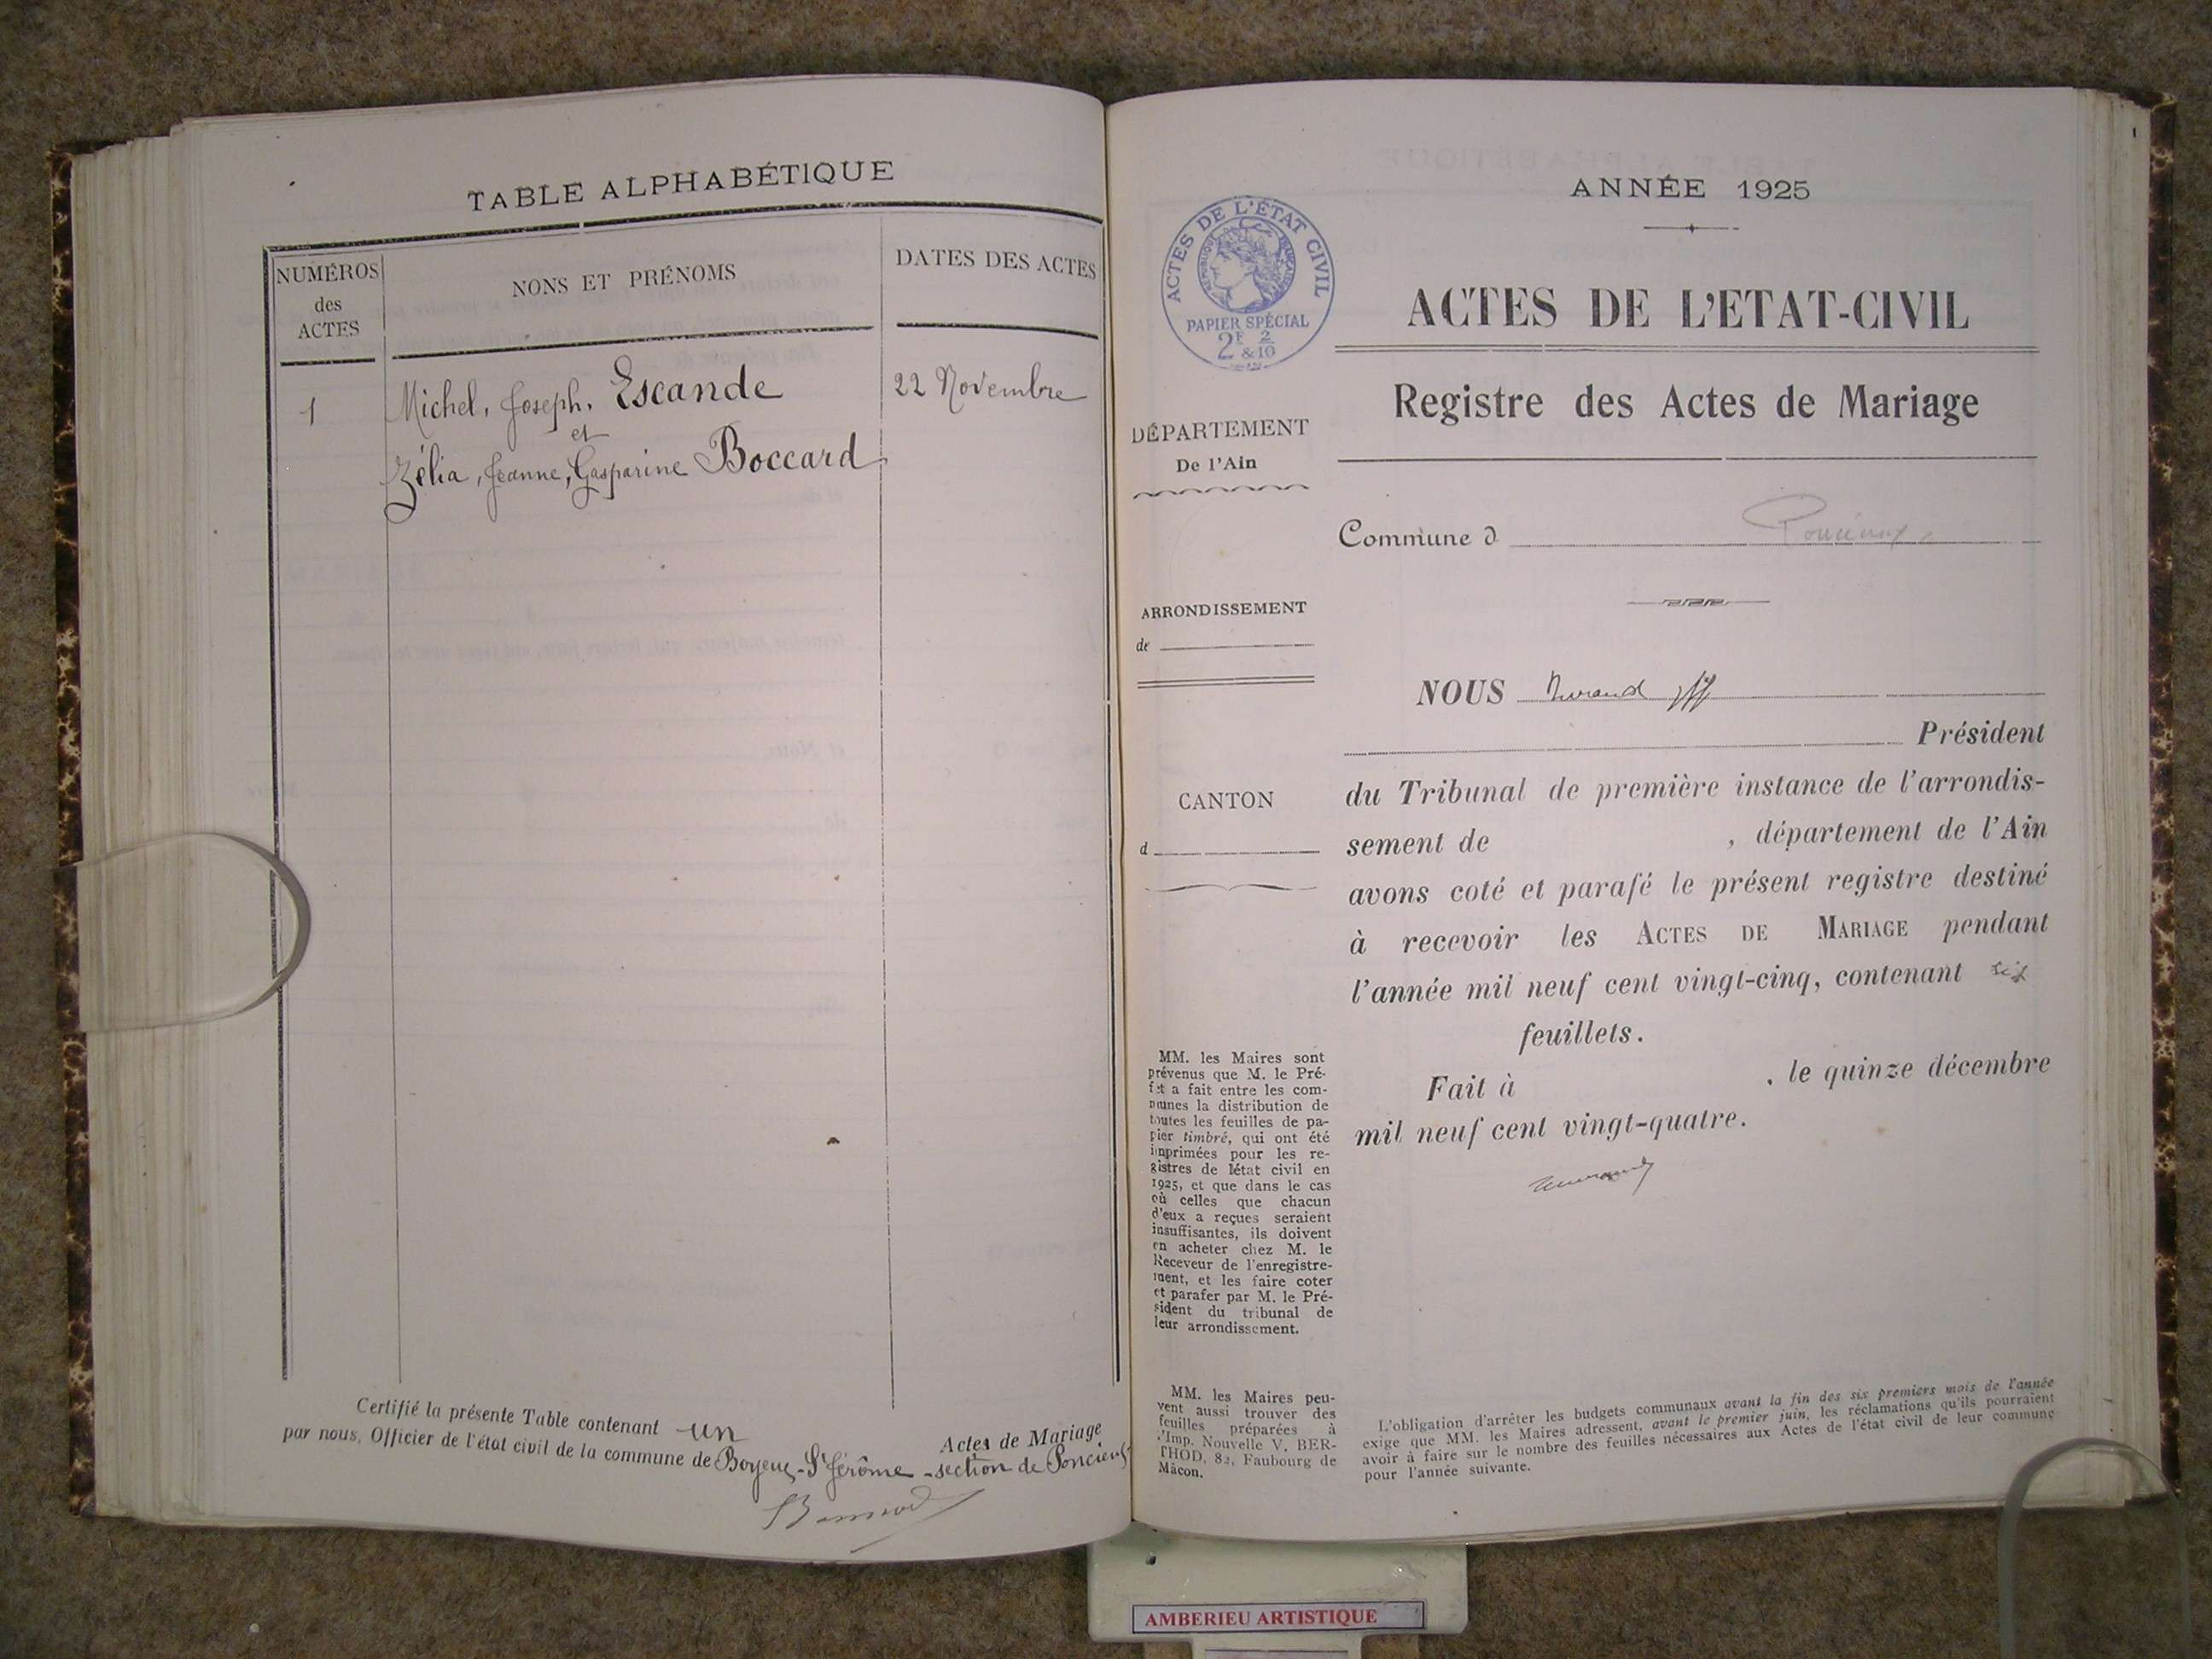 TABLE ALPHABÉTIQUE
NUMÉROS
des
ACTES
NONS ET PRÉNOMS
DATES DES ACTES
1
Michel, Joseph, Escande
22 Novembre
et
Zélia, Jeanne, Gasparine Boccard
Certifié la présente Table contenant un
Actes de Mariage
par nous, Officier de l'état civil de la commune de Boyeux-St Jérôme - section de Poncieux
ANNÉE 1925
ACTES DE L'ÉTAT CIVIL
RÉPUBLIQUE FRANÇAISE
PAPIER SPÉCIAL
2F 2
&10
ACTES DE L'ETAT-CIVIL
Registre des Actes de Mariage
DÉPARTEMENT
De l'Ain
Commune d Poncieux
ARRONDISSEMENT
de
NOUS Durand
Président
CANTON
d
du Tribunal de première instance de l'arrondis-
sement de , département de l'Ain
avons coté et parafé le présent registre destiné
à recevoir les ACTES DE MARIAGE pendant
l'année mil neuf cent vingt-cinq, contenant six
feuillets.
Fait à , le quinze décembre
mil neuf cent vingt-quatre.
MM. les Maires sont
prévenus que M. le Pré-
fet a fait entre les com-
munes la distribution de
toutes les feuilles de pa-
pier timbré, qui ont été
imprimées pour les re-
gistres de létat civil en
1925, et que dans le cas
où celles que chacun
d'eux a reçues seraient
insuffisantes, ils doivent
en acheter chez M. le
Receveur de l'enregistre-
ment, et les faire coter
et parafer par M. le Pré-
sident du tribunal de
leur arrondissement.
MM. les Maires peu-
vent aussi trouver des
feuilles préparées à
l'Imp. Nouvelle V. BER-
THOD, 82, Faubourg de
Mâcon.
L'obligation d'arrêter les budgets communaux avant la fin des six premiers mois de l'année
exige que MM. les Maires adressent, avant le premier juin, les réclamations qu'ils pourraient
avoir à faire sur le nombre des feuilles nécessaires aux Actes de l'état civil de leur commune
pour l'année suivante.
AMBERIEU ARTISTIQUE